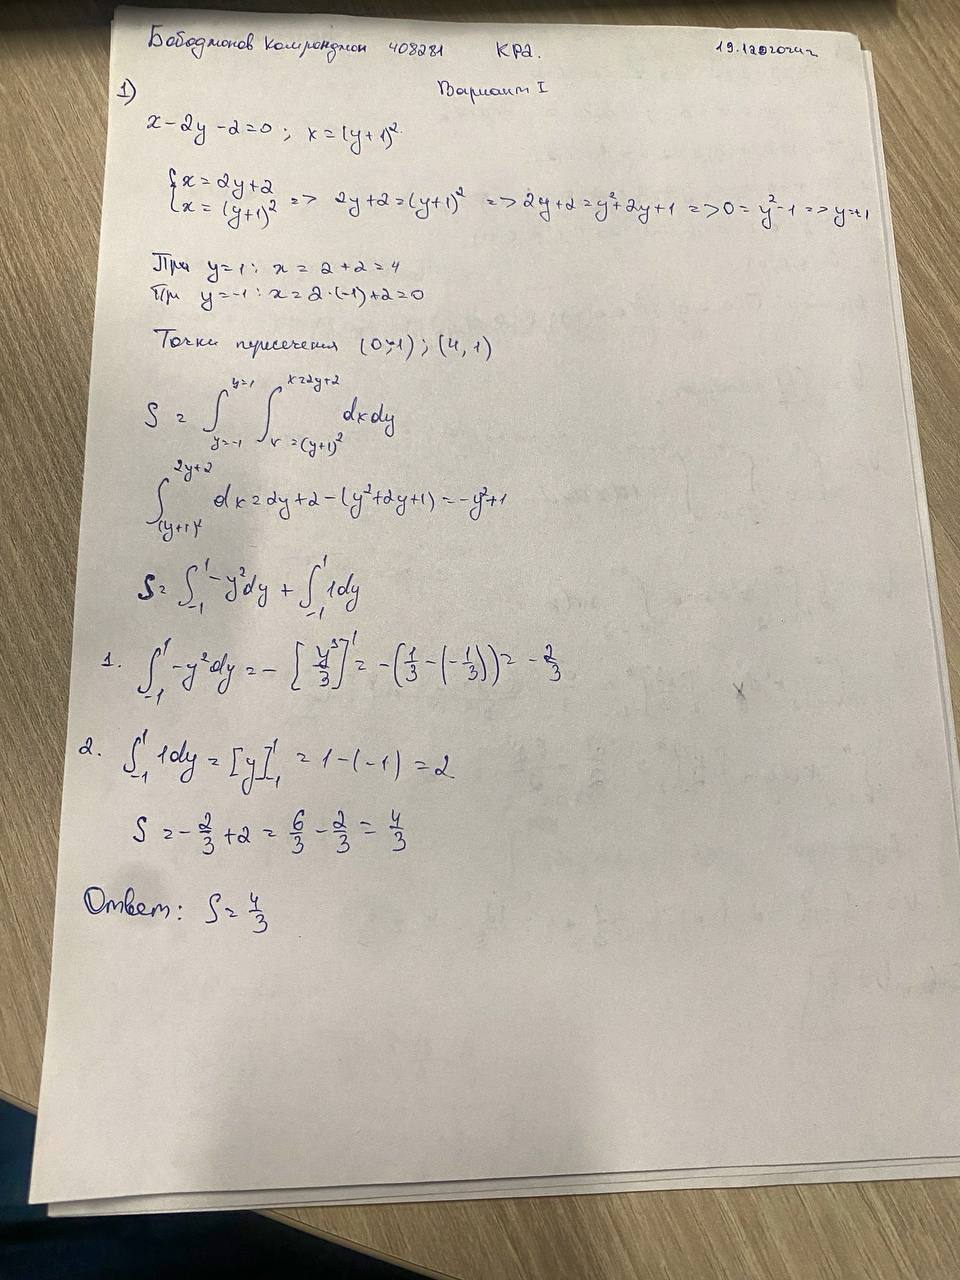 Бободжонов Комронджон 408281 КР2. 19.12.2024г
Вариант I
1)
x-2y-2=0; x=(y+1)².
{x=2y+2
{x=(y+1)² => 2y+2=(y+1)² => 2y+2=y²+2y+1 => 0=y²-1 => y=±1
При y=1: x=2+2=4
При y=-1: x=2·(-1)+2=0
Точки пересечения (0;-1); (4,1)
S = ∫_{y=-1}^{y=1} ∫_{x=(y+1)²}^{x=2y+2} dxdy
∫_{(y+1)²}^{2y+2} dx=2y+2-(y²+2y+1)=-y²+1
S= ∫_{-1}^{1} -y²dy + ∫_{-1}^{1} 1dy
1. ∫_{-1}^{1} -y²dy = -[y³/3]^{1} = -(1/3-(-1/3))= -2/3
2. ∫_{-1}^{1} 1dy = [y]_{-1}^{1} = 1-(-1)=2
S = -2/3+2 = 6/3-2/3 = 4/3
Ответ: S=4/3